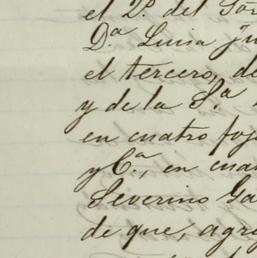 el 2º del
D.ª Luisa
el tercero, de
y de la S.ª
en cuatro foj
y C.ª, en cua
Severino Ga
de que, agre